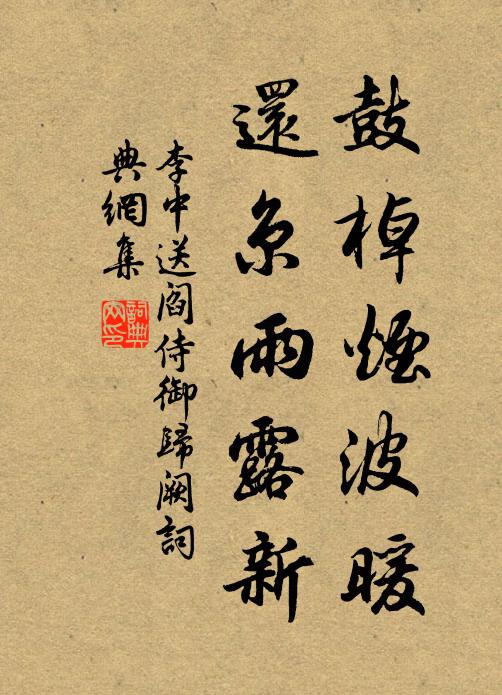 鼓棹煙波暖
還京雨露新
李中送閻侍御歸闕詞
典網集
詞典网印